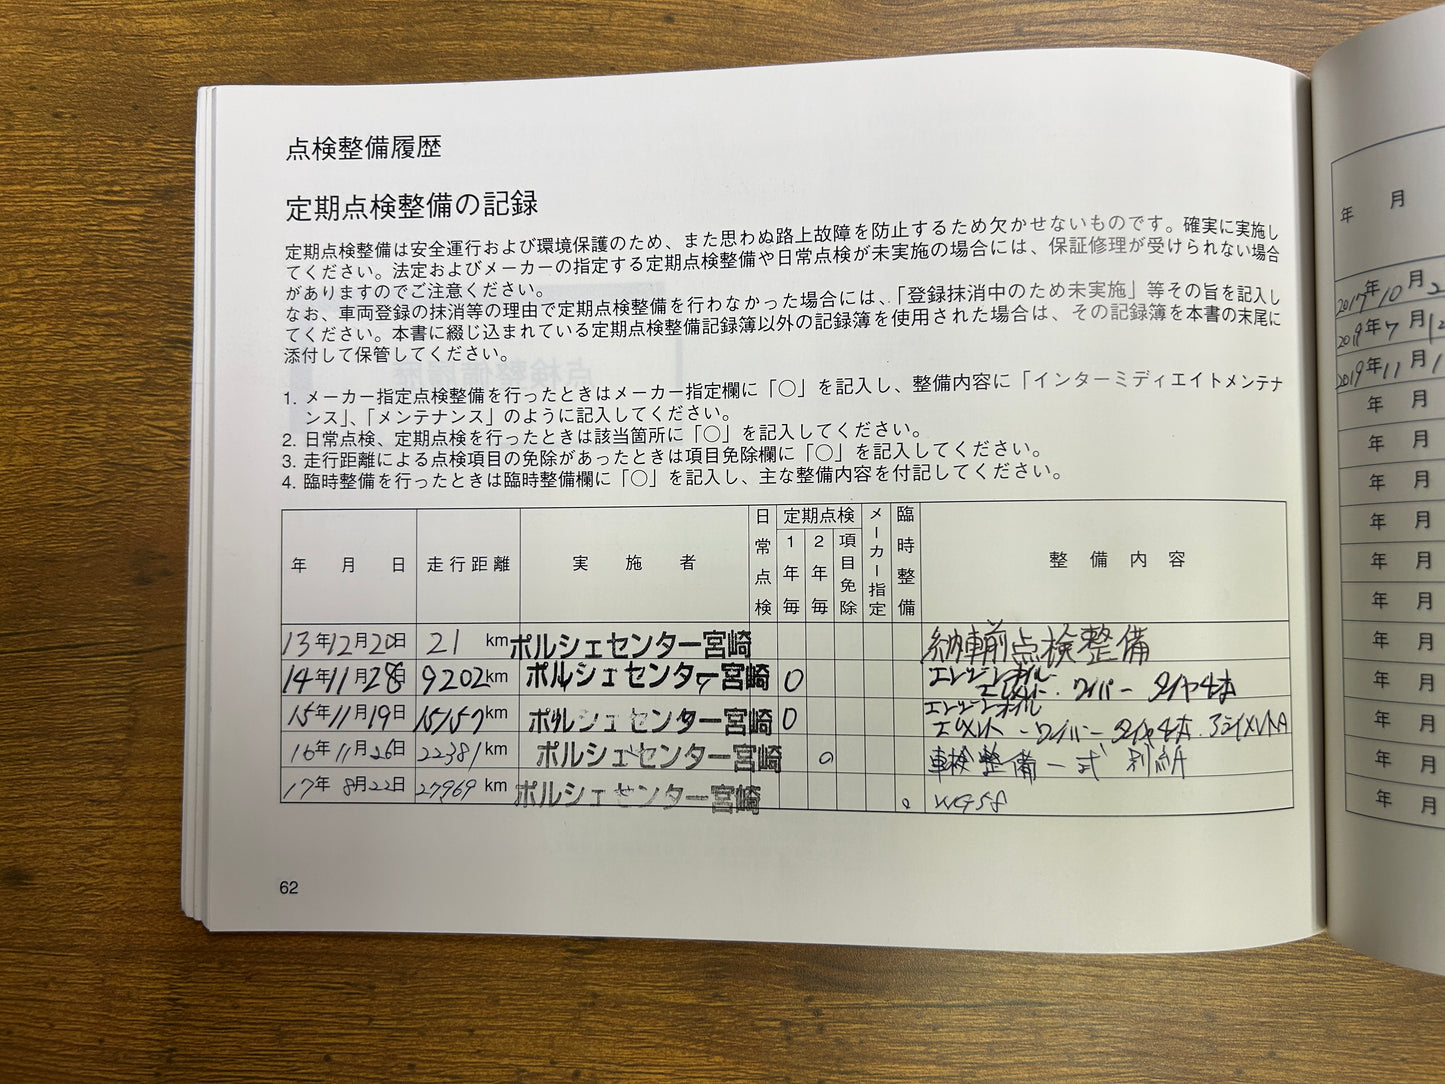 点検整備履歴
定期点検整備の記録
定期点検整備は安全運行および環境保護のため、また思わぬ路上故障を防止するため欠かせないものです。確実に実施し
てください。法定およびメーカーの指定する定期点検整備や日常点検が未実施の場合には、保証修理が受けられない場合
がありますのでご注意ください。
なお、車両登録の抹消等の理由で定期点検整備を行わなかった場合には、「登録抹消中のため未実施」等その旨を記入し
てください。本書に綴じ込まれている定期点検整備記録簿以外の記録簿を使用された場合は、その記録簿を本書の末尾に
添付して保管してください。
1. メーカー指定点検整備を行ったときはメーカー指定欄に「○」を記入し、整備内容に「インターミディエイトメンテナ
ンス」、「メンテナンス」のように記入してください。
2. 日常点検、定期点検を行ったときは該当箇所に「○」を記入してください。
3. 走行距離による点検項目の免除があったときは項目免除欄に「○」を記入してください。
4. 臨時整備を行ったときは臨時整備欄に「○」を記入し、主な整備内容を付記してください。
年 月 日 走行距離 実施者 日常点検 定期点検 1年毎 2年毎 項目免除 メーカー指定 臨時整備 整備内容
13年12月20日 21 km ポルシェセンター宮崎 納車前点検整備
14年11月28日 9202km ポルシェセンター宮崎 ○ エンジンオイル
エレメント. ワイパー タイヤ4本
15年11月19日 15157km ポルシェセンター宮崎 ○ エンジンオイル
エレメント ワイパー タイヤ4本.
16年11月26日 22381km ポルシェセンター宮崎 ○ 車検整備一式
17年 8月22日 27969 km ポルシェセンター宮崎 ○ WG58
62
年 月
2017年10月2
2019年7月12
2019年11月1
年 月
年 月
年 月
年 月
年 月
年 月
年 月
年 月
年 月
年 月
年 月